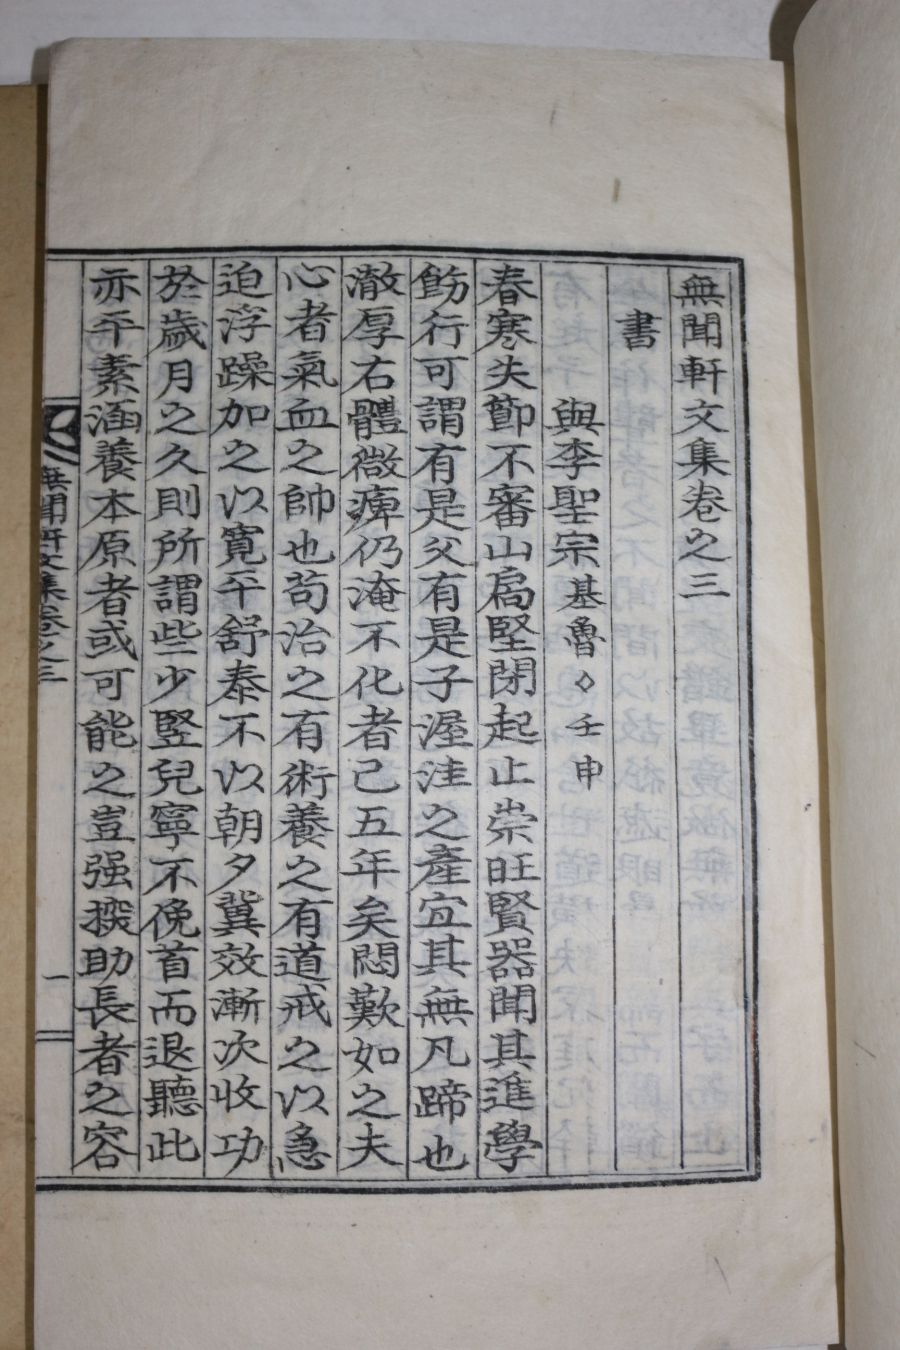 無聞軒文集卷之三
書
與李聖宗基魯◇壬申
春寒失節不審山扄堅閉起止崇旺賢器聞其進學
飭行可謂有是父有是子渥洼之產宜其無凡蹄也
澈厚右體微痺仍淹不化者已五年矣悶歎如之夫
心者氣血之帥也苟治之有術養之有道戒之以急
迫浮躁加之以寬平舒泰不以朝夕冀效漸次收功
於歲月之久則所謂些少竪兒寧不俛首而退聽此
亦平素涵養本原者或可能之豈强揆助長者之容
無聞軒文集卷之三
一